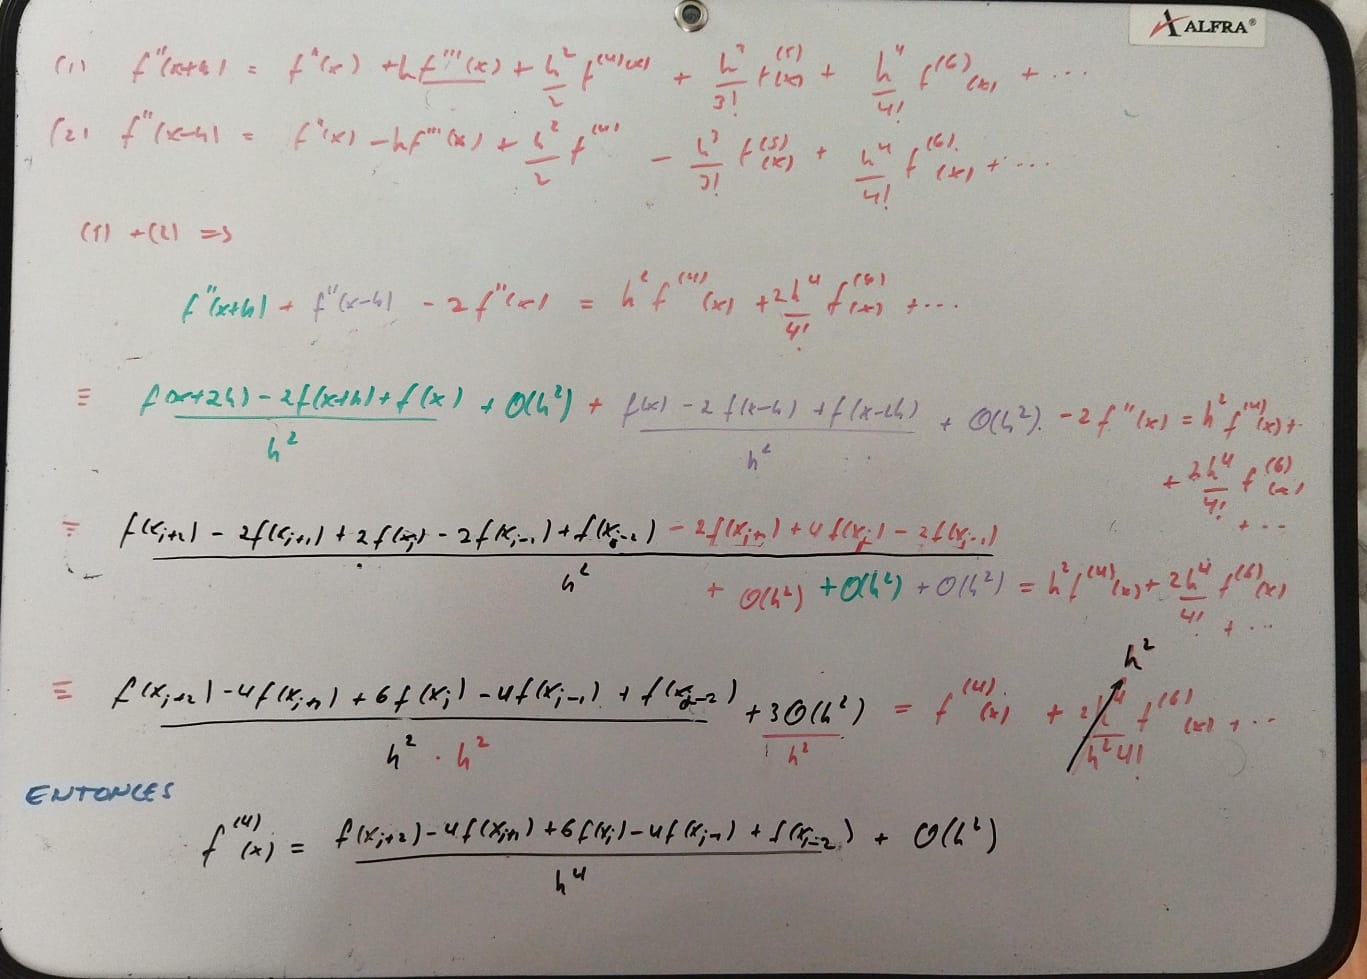 ALFRA®
(1) f''(x+h) = f''(x) + hf'''(x) + h²/2 f⁽⁴⁾(x) + h³/3! f⁽⁵⁾(x) + h⁴/4! f⁽⁶⁾(x) + ...
(2) f''(x-h) = f''(x) - hf'''(x) + h²/2 f⁽⁴⁾ - h³/3! f⁽⁵⁾(x) + h⁴/4! f⁽⁶⁾(x) + ...
(1) + (2) =>
f''(x+h) + f''(x-h) - 2f''(x) = h² f⁽⁴⁾(x) + 2h⁴/4! f⁽⁶⁾(x) + ...
≡ (f(x+2h) - 2f(x+h) + f(x))/h² + O(h²) + (f(x) - 2f(x-h) + f(x-2h))/h² + O(h²) - 2f''(x) = h² f⁽⁴⁾(x) +
+ 2h⁴/4! f⁽⁶⁾(x)
+ ...
≡ (f(xᵢ₊₂) - 2f(xᵢ₊₁) + 2f(xᵢ) - 2f(xᵢ₋₁) + f(xᵢ₋₂) - 2f(xᵢ₊₁) + 4f(xᵢ) - 2f(xᵢ₋₁))/h²
+ O(h²) + O(h²) + O(h²) = h² f⁽⁴⁾(x) + 2h⁴/4! f⁽⁶⁾(x)
+ ...
h²
≡ (f(xᵢ₊₂) - 4f(xᵢ₊₁) + 6f(xᵢ) - 4f(xᵢ₋₁) + f(xᵢ₋₂))/(h² · h²) + 3O(h²)/h² = f⁽⁴⁾(x) + 2h⁴/(h²4!) f⁽⁶⁾(x) + ...
ENTONCES
f⁽⁴⁾(x) = (f(xᵢ₊₂) - 4f(xᵢ₊₁) + 6f(xᵢ) - 4f(xᵢ₋₁) + f(xᵢ₋₂))/h⁴ + O(h²)